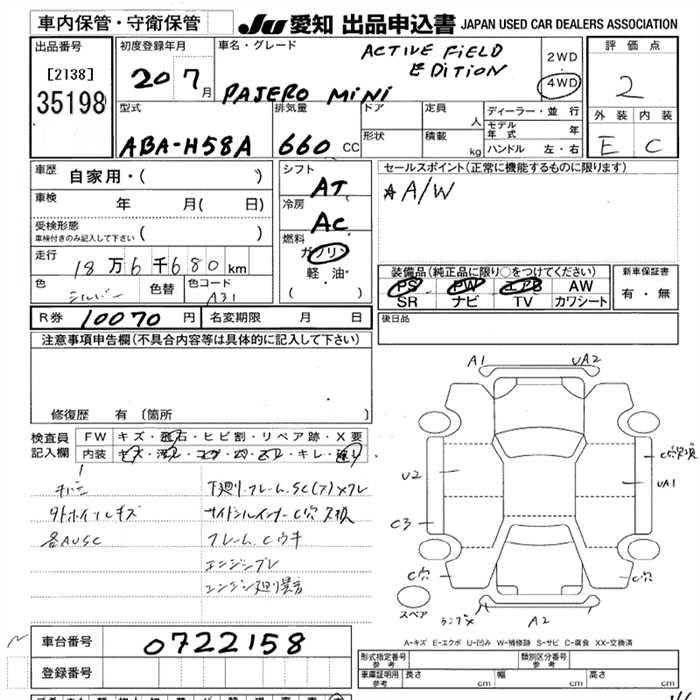 車内保管・守衛保管
JU 愛知 出品申込書 JAPAN USED CAR DEALERS ASSOCIATION
出品番号
[2138]
35198
初度登録年月
20 7月
車名・グレード
ACTIVE FIELD
EDITION
PAJERO MINI
2WD
4WD
評価点
2
外装 内装
E C
型式
ABA-H58A
排気量
660 CC
ドア
形状
定員 人
積載 kg
ディーラー・並行
モデル年式 年
ハンドル 左・右
車歴 自家用・( )
車検 年 月( 日)
受検形態
車検付きのみ記入して下さい ( )
走行 18万6千680km
色 シルバー 色替 色コード A31
シフト
AT
冷房
AC
燃料
ガソリン
軽油
( ・ )
セールスポイント(正常に機能するものに限ります)
*A/W
装備品(純正品に限り○をつけてください)
PS PW エアB AW
SR ナビ TV カワシート
新車保証書
有・無
後日品
R券 10070円 名変期限 月 日
注意事項申告欄(不具合内容等は具体的に記入して下さい)
修復歴 有 〔箇所 〕
検査員
記入欄
FW キズ・飛石・ヒビ割・リペア跡・X要
内装 キズ・汚レ・コゲ・穴・スレ・キレ・
外ホイルキズ
各AUSC
下廻り.フレーム.SC(ア)×フレ
サイドシルインナーC穴
フレームCウキ
A1 UA2
U2 UA1
C3
C穴 C穴
スペア
A2
A-キズ E-エクボ U-凹み W-補修跡 S-サビ C-腐食 XX-交換済
車台番号 0722158
登録番号
形式指定番号 参考
類別区分番号 参考
車庫証明用 参考 長さ cm 幅 cm 高さ cm